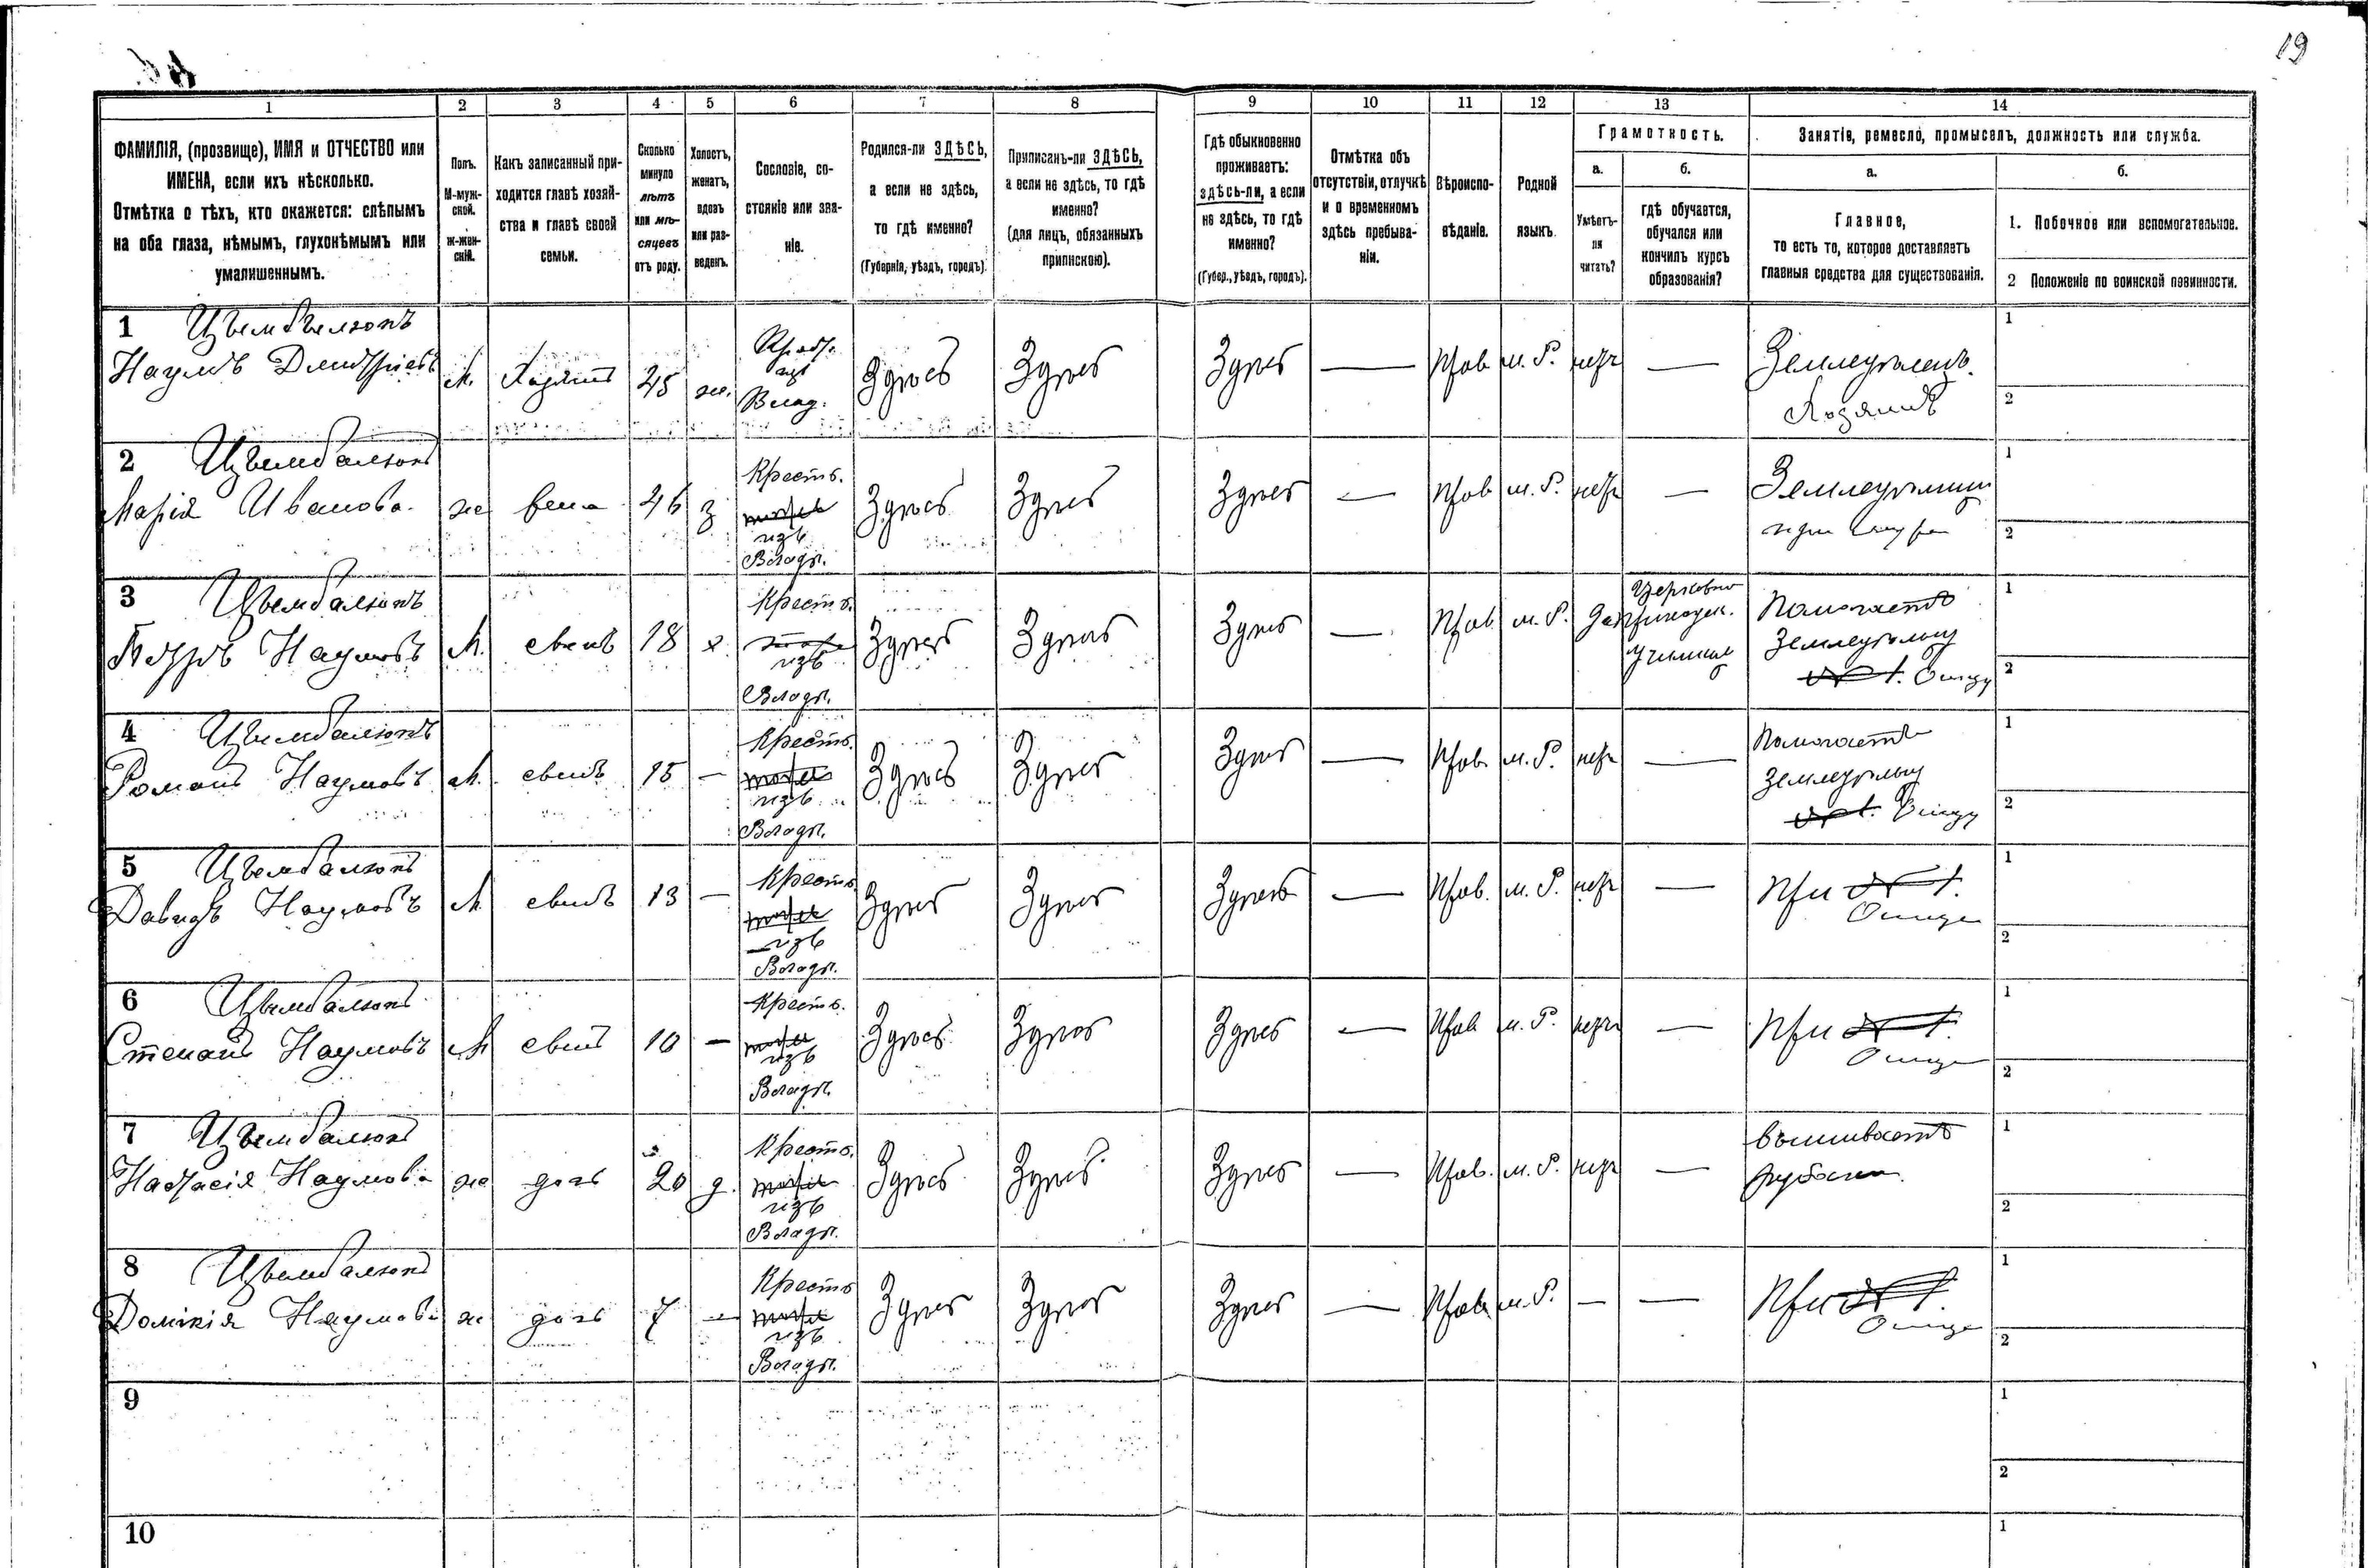 19
1 2 3 4 5 6 7 8 9 10 11 12 13 14
ФАМИЛІЯ, (прозвище), ИМЯ и ОТЧЕСТВО или
ИМЕНА, если ихъ нѣсколько.
Отмѣтка о тѣхъ, кто окажется: слѣпымъ
на оба глаза, нѣмымъ, глухонѣмымъ или
умалишеннымъ.
Полъ.
М-муж-
ской.
ж-жен-
скій.
Какъ записанный при-
ходится главѣ хозяй-
ства и главѣ своей
семьи.
Сколько
минуло
лѣтъ
или мѣ-
сяцевъ
отъ роду.
Холостъ,
женатъ,
вдовъ
или раз-
веденъ.
Сословіе, со-
стояніе или зва-
ніе.
Родился-ли ЗДѢСЬ,
а если не здѣсь,
то гдѣ именно?
(Губернія, уѣздъ, городъ).
Приписанъ-ли ЗДѢСЬ,
а если не здѣсь, то гдѣ
именно?
(для лицъ, обязанныхъ
припискою).
Гдѣ обыкновенно
проживаетъ:
здѣсь-ли, а если
не здѣсь, то гдѣ
именно?
(Губер., уѣздъ, городъ).
Отмѣтка объ
отсутствіи, отлучкѣ
и о временномъ
здѣсь пребыва-
ніи.
Вѣроиспо-
вѣданіе.
Родной
языкъ.
Грамотность.
а.
Умѣетъ-
ли
читать?
б.
гдѣ обучается,
обучался или
кончилъ курсъ
образованія?
Занятіе, ремесло, промыселъ, должность или служба.
а.
Главное,
то есть то, которое доставляетъ
главныя средства для существованія.
б.
1. Побочное или вспомогательное.
2 Положеніе по воинской повинности.
1 Цымбалюкъ
Наумъ Дмитріевъ М. Хозяинъ 45 ж. Крест. изъ Влад. Здѣсь Здѣсь Здѣсь — Прав м. Р. нетъ — Земледѣлецъ.
Хозяинъ
1
2
2 Цымбалюкъ
Марія Иванова ж жена 46 з Крест. изъ Владѣ. Здѣсь Здѣсь Здѣсь — Прав м. Р. нетъ —
1
2
3 Цымбалюкъ
Петръ Наумовъ М. сынъ 18 х Крест. изъ Владѣ. Здѣсь Здѣсь Здѣсь — Прав м. Р. да Церковно
приходск.
училище
Помогаетъ
земледѣльцу
отцу
1
2
4 Цымбалюкъ
Романъ Наумовъ М. сынъ 15 — Крест. изъ Владѣ. Здѣсь Здѣсь Здѣсь — Прав м. Р. нетъ — Помогаетъ
земледѣльцу
отцу
1
2
5 Цымбалюкъ
Давидъ Наумовъ М сынъ 13 — Крест. изъ Владѣ. Здѣсь Здѣсь Здѣсь — Прав. м. Р. нетъ — При
отце
1
2
6 Цымбалюкъ
Степанъ Наумовъ М сынъ 10 — Крест. изъ Владѣ. Здѣсь Здѣсь Здѣсь — Прав м. Р. нетъ — При
отце
1
2
7 Цымбалюкъ
Настасія Наумова ж дочь 20 д. Крест. изъ Владѣ. Здѣсь Здѣсь Здѣсь — Прав. м. Р. нетъ — вышиваетъ
рубахи
1
2
8 Цымбалюкъ
Домникія Наумова ж дочь 7 — Крест. изъ Владѣ. Здѣсь Здѣсь Здѣсь — Прав м. Р. — — При
отце
1
2
9
1
2
10
1